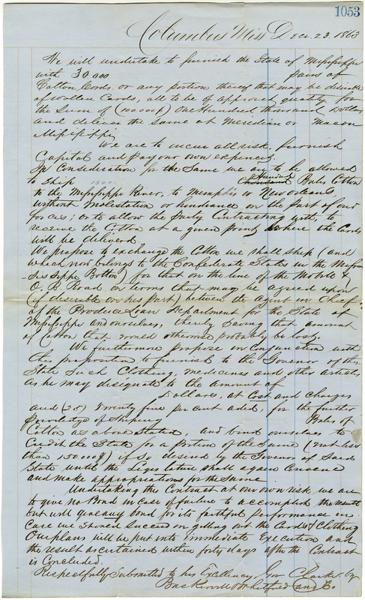 1053
Columbus Miss Dec. 23. 1863
We will undertake to furnish the State of Mississippi
with 30,000 pairs of
Cotton Cards, or any portion thereof that may be desired
of Cotton Cards, all to be of approved quality for
the Sum of One Hundred thousand Dollars
and deliver the same at Meridian or Macon
Mississippi
We are to incur all risk, furnish
Capital and pay our own expenses.
In Consideration for the Same we are to be allowed
to Ship Hundred Bales Cotton
to the Mississippi River, to Memphis or New Orleans,
without molestation or hindrance on the part of our
forces; or to allow the party Contracting with, to
receive the Cotton at a given point where the Cards
will be delivered.
We propose to exchange the Cotton we shall ship (and
which now belongs to the Confederate States on the Missis-
sippi Bottom) for that on the line of the Mobile &
O. R. Road on terms that may be agreed upon
(if desirable on his part) between the Agent in Chief
of the Produce Loan Department for the State of
Mississippi and ourselves, thereby saving that amount
of Cotton that would otherwise probably be lost.
We further propose in Connection with
the proposition to furnish to the Governor of the
State Such Clothing, medicines and other articles,
as he may designate to the amount of
Dollars, at cost and charges
and (25) Twenty five per cent added, for the further
privilege of shipping Bales of
Cotton as above stated, and bind ourselves to
Credit the State for a portion of the Same (not less
than 150,000$) if so desired by the Governor of Said
State until the Legislature shall again Convene
and make appropriations for the Same
Undertaking the Contract at our own risk we are
to give no Bond in Case of failure to accomplish the result
but will give any bond for its faithful performance in
Case we should Succeed in getting out the Cards & Clothing
Our plans will be put into immediate Execution and
the result ascertained within forty days after the Contract
is Concluded.
Respectfully Submitted to his Excellency Gov Clark by